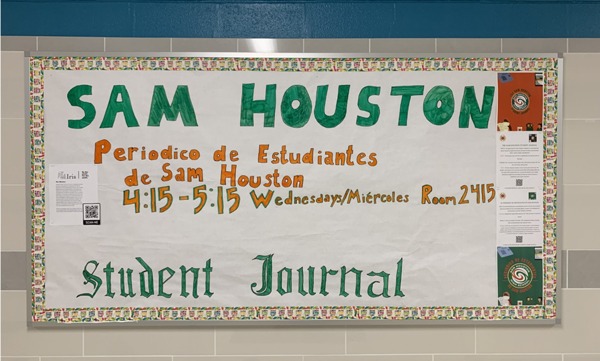 SAM HOUSTON
Periodico de Estudiantes
de Sam Houston
4:15-5:15 Wednesdays/Miércoles Room 2415
Student Journal